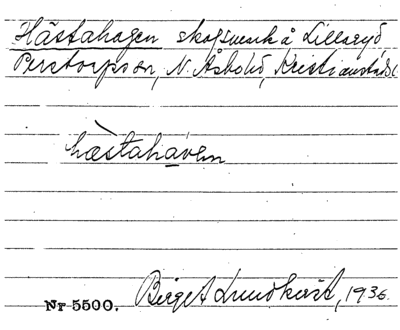 Hästahagen skogsmark å Lillaryd
Perstorpssn, N. Åsbohd, Kristianstads l.
hæ̀stahaven
Nr 5500. Birget Lundkvist, 1936.